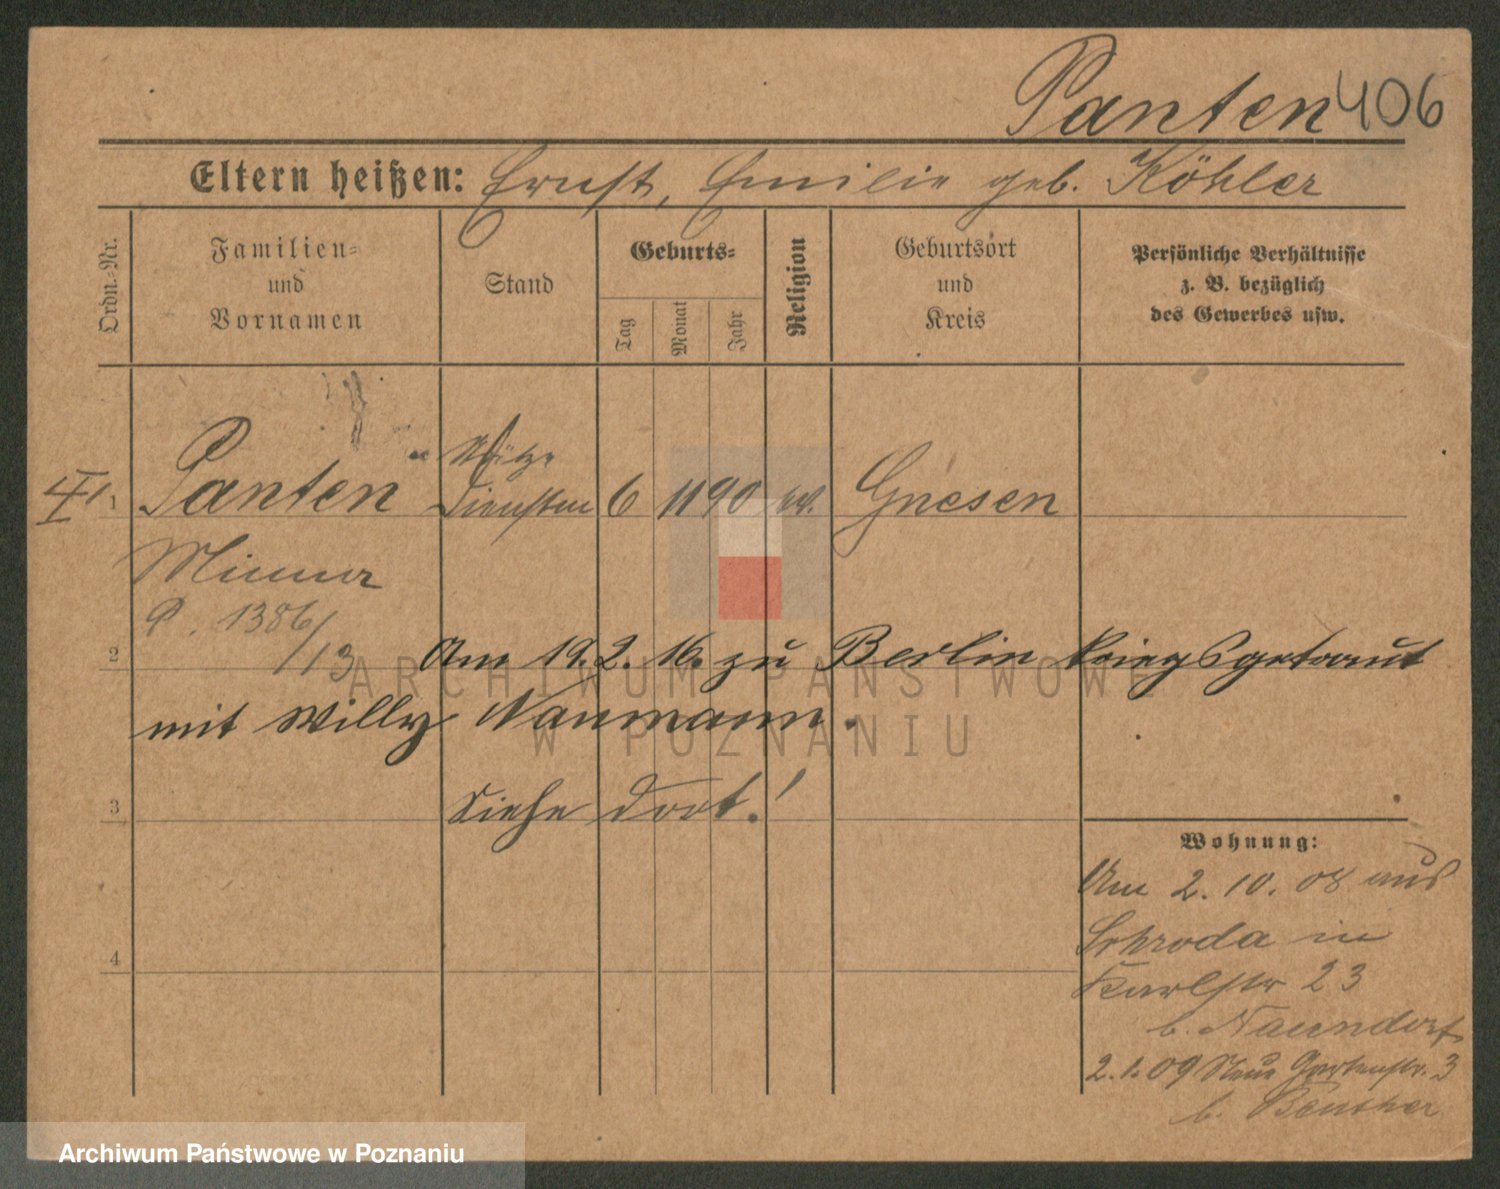 Panten 406
Eltern heißen: Ernst, Emilie geb. Köhler
Ordn.-Nr.
Familien-
und
Vornamen
Stand
Geburts-
Tag
Monat
Jahr
Religion
Geburtsort
und
Kreis
Persönliche Verhältnisse
z. B. bezüglich
des Gewerbes usw.
Stütze
1 Panten 6 11 90 ev. Gnesen
Minna
P. 1386/13
2 Am 19.2.16. zu Berlin kriegsgetraut
mit Willy Naumann.
3 Siehe dort!
4
Wohnung:
Am 2.10.08 aus
Schroda in
Karlstr 23
b. Naundorf
2.1.09 Neue Gartenstr. 3
b.
ARCHIWUM PAŃSTWOWE
W POZNANIU
Archiwum Państwowe w Poznaniu